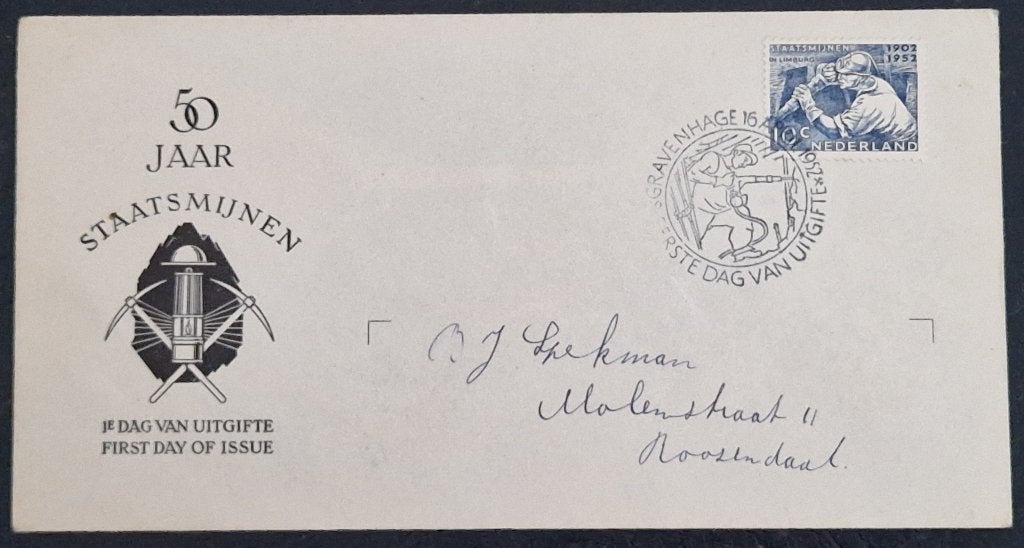 50
JAAR
STAATSMIJNEN
1E DAG VAN UITGIFTE
FIRST DAY OF ISSUE
STAATSMIJNEN 1902
IN LIMBURG 1952
10c NEDERLAND
SGRAVENHAGE 16 APR. 1952*
EERSTE DAG VAN UITGIFTE
B J Spekman
Molenstraat 11
Roosendaal.